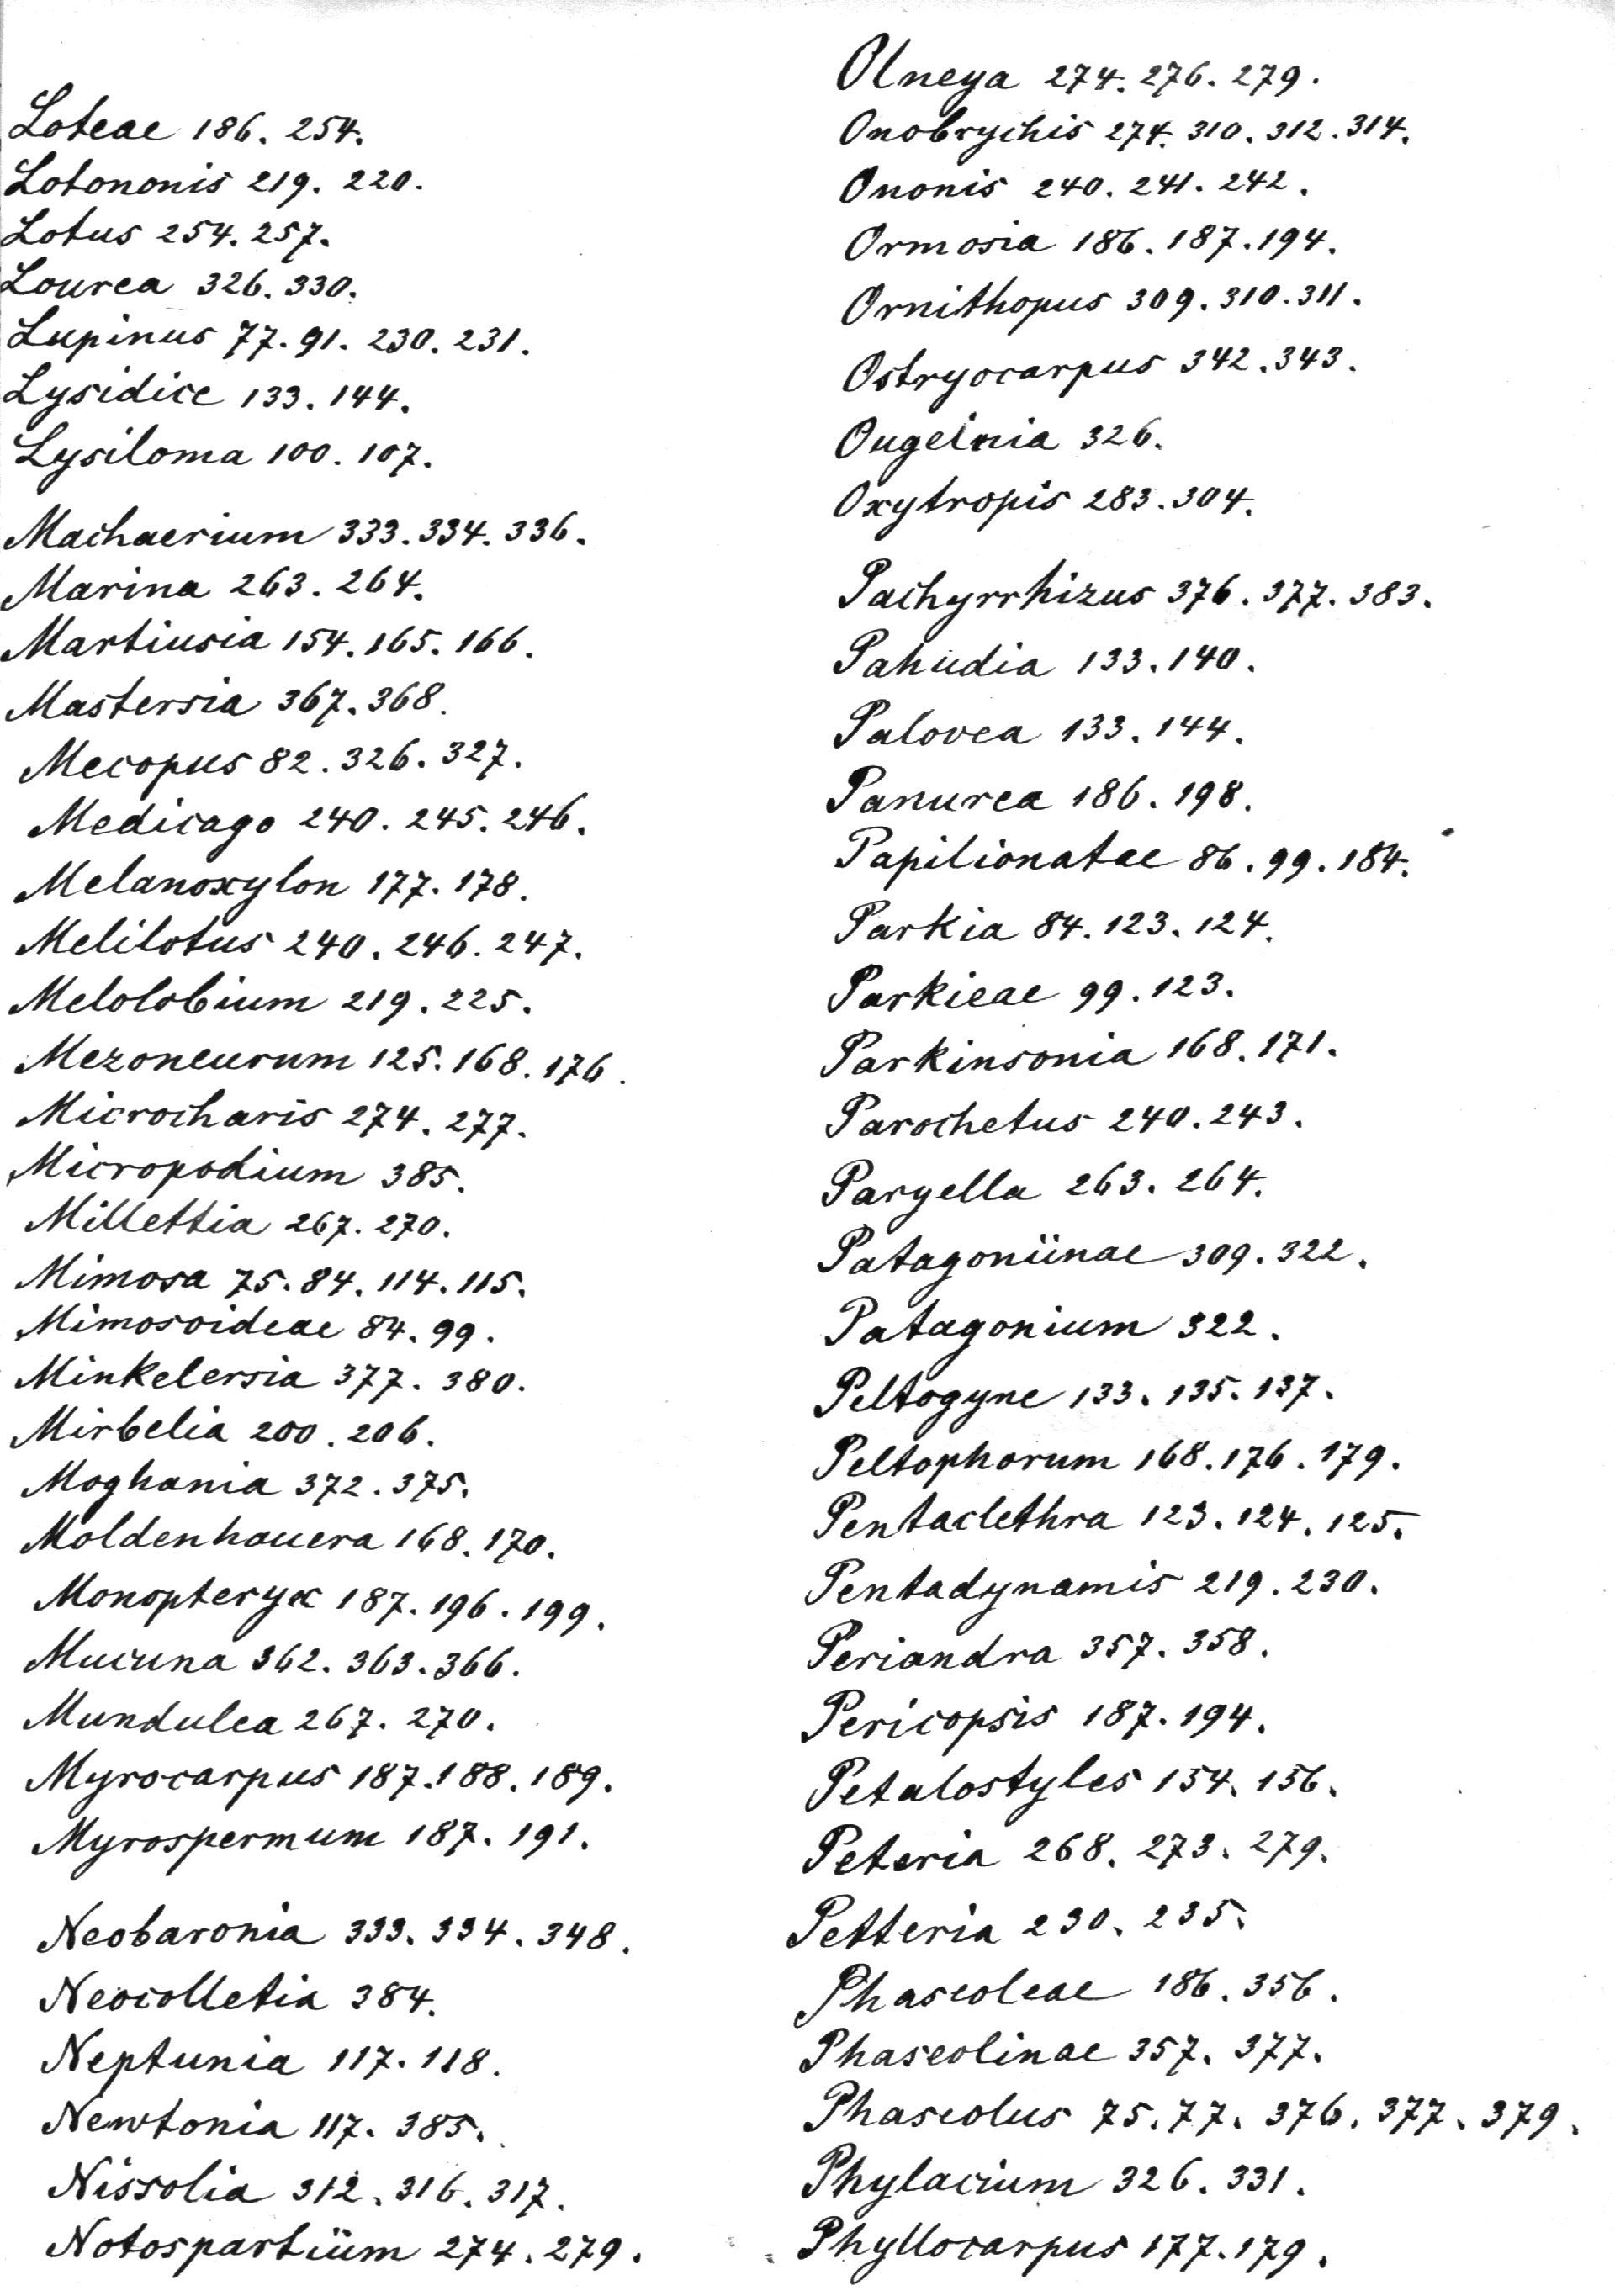 Loteae 186. 254.
Lotononis 219. 220.
Lotus 254. 257.
Lourea 326. 330.
Lupinus 77. 91. 230. 231.
Lysidice 133. 144.
Lysiloma 100. 107.
Machaerium 333. 334. 336.
Marina 263. 264.
Martiusia 154. 165. 166.
Mastersia 367. 368.
Mecopus 82. 326. 327.
Medicago 240. 245. 246.
Melanoxylon 177. 178.
Melilotus 240. 246. 247.
Melolobium 219. 225.
Mezoneurum 125. 168. 176.
Microcharis 274. 277.
Micropodium 385.
Millettia 267. 270.
Mimosa 75. 84. 114. 115.
Mimosoideae 84. 99.
Minkelersia 377. 380.
Mirbelia 200. 206.
Moghania 372. 375.
Moldenhauera 168. 170.
Monopteryx 187. 196. 199.
Mucuna 362. 363. 366.
Mundulea 267. 270.
Myrocarpus 187. 188. 189.
Myrospermum 187. 191.
Neobaronia 333. 334. 348.
Neocolletia 384.
Neptunia 117. 118.
Newtonia 117. 385.
Nissolia 312. 316. 317.
Notospartium 274. 279.
Olneya 274. 276. 279.
Onobrychis 274. 310. 312. 314.
Ononis 240. 241. 242.
Ormosia 186. 187. 194.
Ornithopus 309. 310. 311.
Ostryocarpus 342. 343.
Ougeinia 326.
Oxytropis 283. 304.
Pachyrrhizus 376. 377. 383.
Pahudia 133. 140.
Palovea 133. 144.
Panurea 186. 198.
Papilionatae 86. 99. 184.
Parkia 84. 123. 124.
Parkieae 99. 123.
Parkinsonia 168. 171.
Parochetus 240. 243.
Paryella 263. 264.
Patagoniinae 309. 322.
Patagonium 322.
Peltogyne 133. 135. 137.
Peltophorum 168. 176. 179.
Pentaclethra 123. 124. 125.
Pentadynamis 219. 230.
Periandra 357. 358.
Pericopsis 187. 194.
Petalostyles 154. 156.
Peteria 268. 273. 279.
Petteria 230. 235.
Phaseoleae 186. 356.
Phaseolinae 357. 377.
Phaseolus 75. 77. 376. 377. 379.
Phylacium 326. 331.
Phyllocarpus 177. 179.